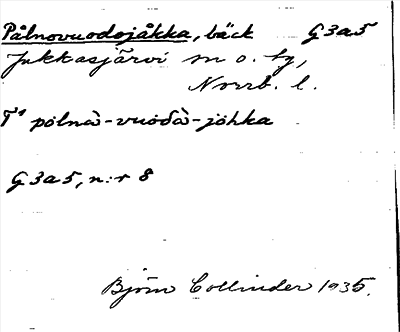 Pålnovuodojåkka, bäck G 3 a 5
Jukkasjärvi sn o. tg,
Norrb. l.
pòlnà-vuoδà-jòhka
G 3 a 5, n:r 8
Björn Collinder 1935.